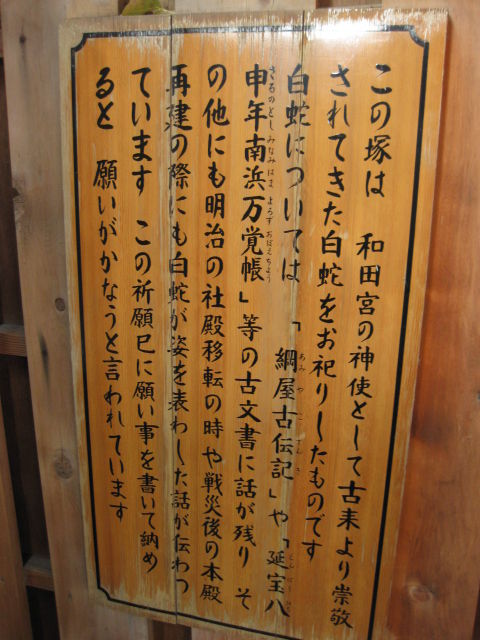 この塚は 和田宮の神使として古来より崇敬
されてきた白蛇をお祀りしたものです
白蛇については 「綱屋古伝記」や「延宝八
申年南浜万覚帳」等の古文書に話が残り そ
の他にも明治の社殿移転の時や戦災後の本殿
再建の際にも白蛇が姿を表わした話が伝わっ
ています この祈願巳に願い事を書いて納め
ると 願いがかなうと言われています